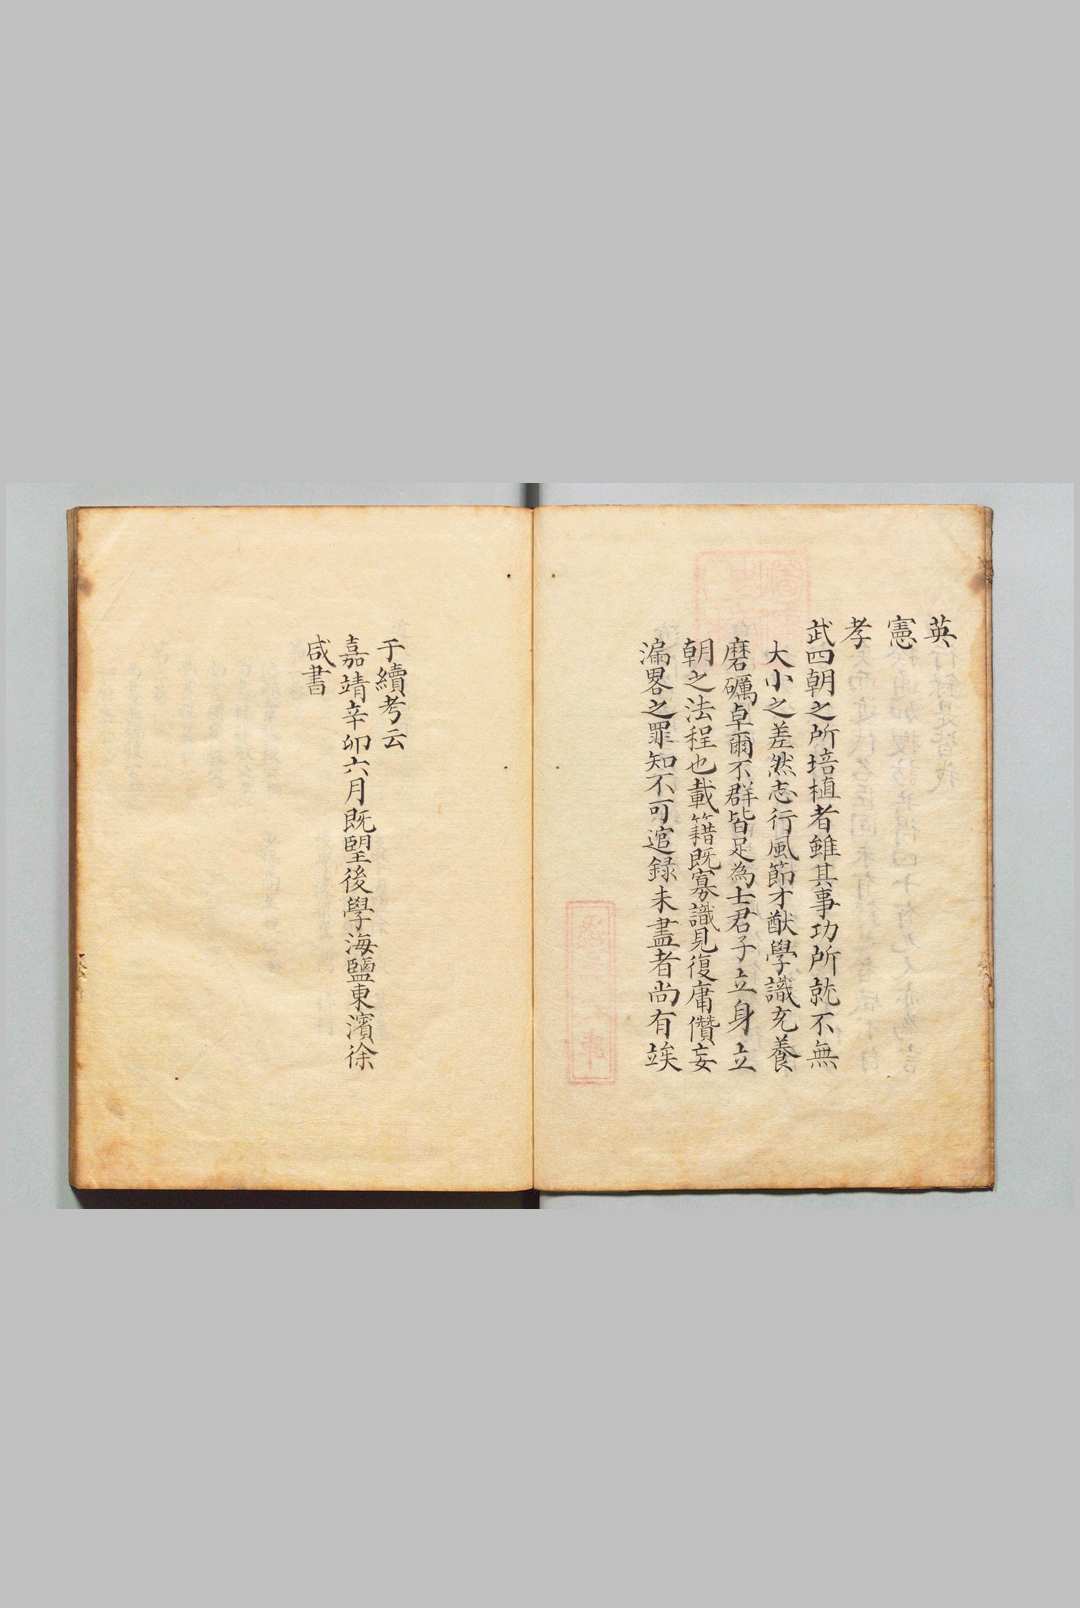 英
憲
孝
武四朝之所培植者雖其事功所就不無
大小之差然志行風節才猷學識充養
磨礪卓爾不群皆足為士君子立身立
朝之法程也載籍既寡識見復庸儹妄
漏畧之罪知不可逭録未盡者尚有竢
于續考云
嘉靖辛卯六月既望後學海鹽東濱徐
咸書